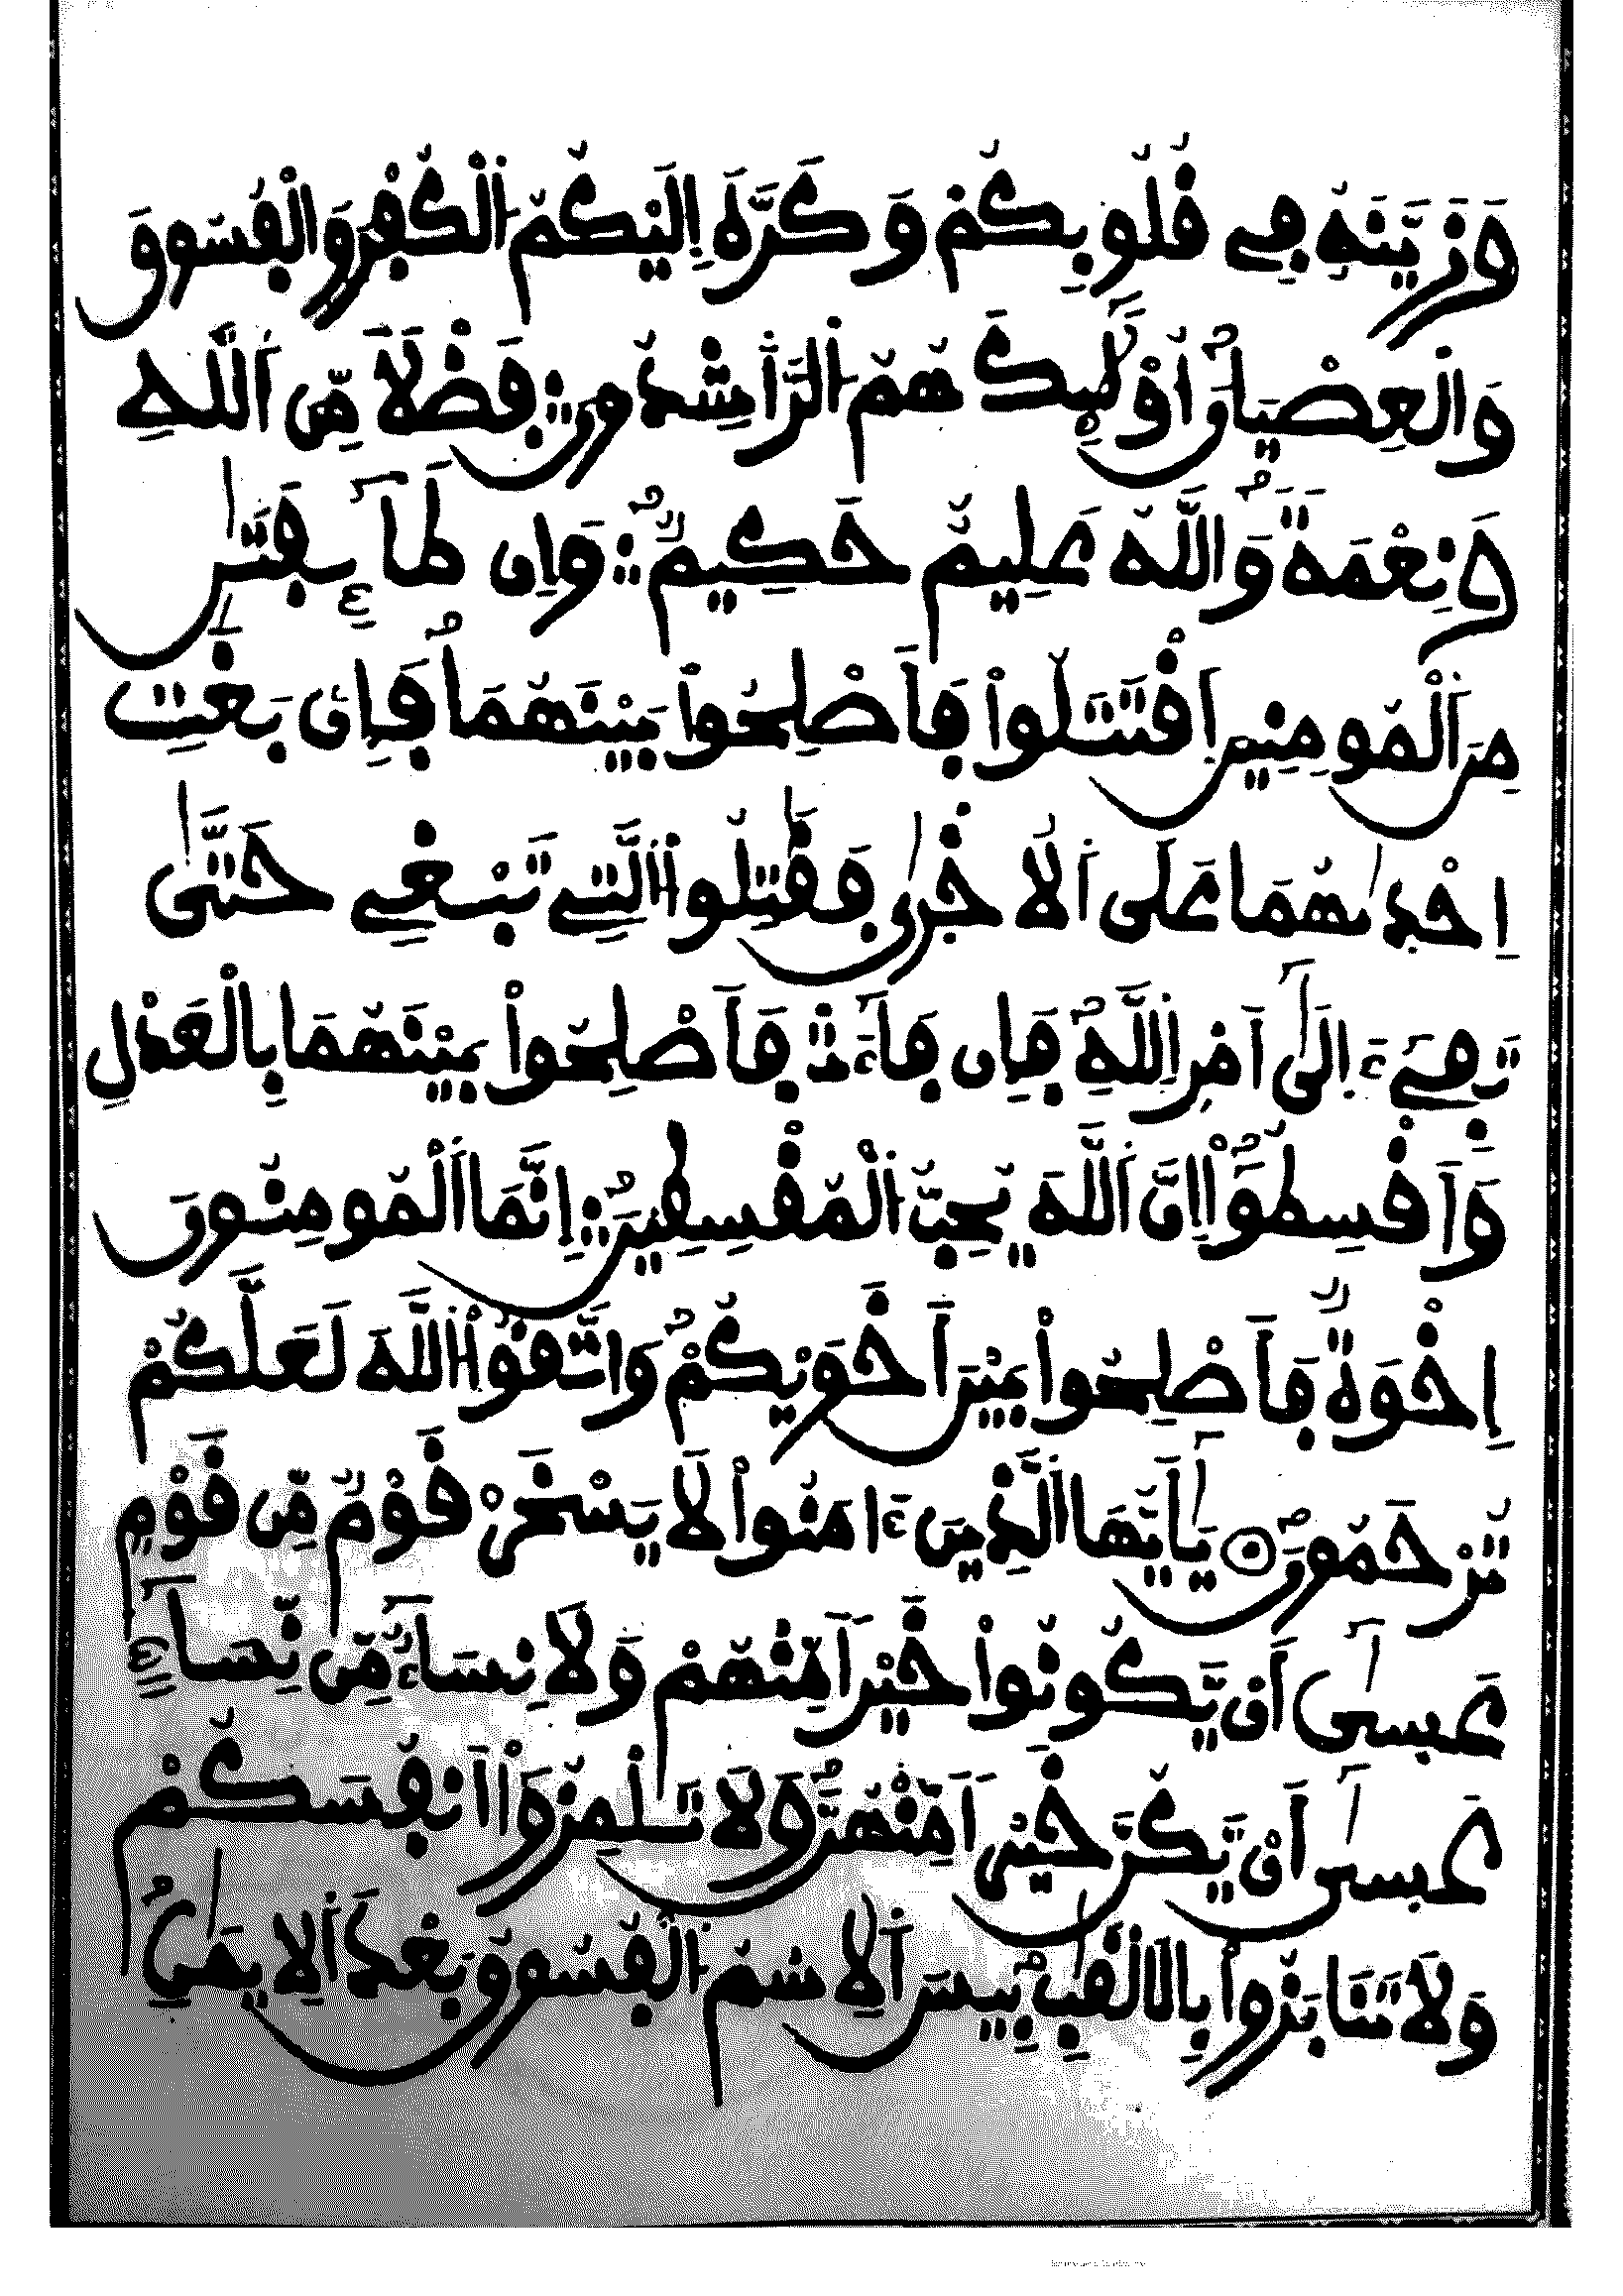 وَزَيَّنَهُۥ فِي قُلُوبِكُمْ وَكَرَّهَ إِلَيْكُمُ الْكُفْرَ وَالْفُسُوقَ
وَالْعِصْيَانَ أُوْلَٰٓئِكَ هُمُ الرَّٰشِدُونَ فَضْلًا مِّنَ اللَّهِ
وَنِعْمَةً وَاللَّهُ عَلِيمٌ حَكِيمٌ وَإِن طَآئِفَتَٰنِ
مِنَ الْمُومِنِينَ اقْتَتَلُواْ فَأَصْلِحُواْ بَيْنَهُمَا فَإِنۢ بَغَتِ
اِحْدَىٰهُمَا عَلَى الَاخْرَىٰ فَقَٰتِلُواْ الَّتِي تَبْغِي حَتَّىٰ
تَفِيٓءَ اِلَىٰٓ أَمْرِ اللَّهِ فَإِن فَآءَتْ فَأَصْلِحُواْ بَيْنَهُمَا بِالْعَدْلِ
وَأَقْسِطُوٓاْ إِنَّ اللَّهَ يُحِبُّ الْمُقْسِطِينَ إِنَّمَا الْمُومِنُونَ
إِخْوَةٌ فَأَصْلِحُواْ بَيْنَ أَخَوَيْكُمْ وَاتَّقُواْ اللَّهَ لَعَلَّكُمْ
تُرْحَمُونَ يَٰٓأَيُّهَا الَّذِينَ ءَامَنُواْ لَا يَسْخَرْ قَوْمٌ مِّن قَوْمٍ
عَسَىٰٓ أَنْ يَّكُونُواْ خَيْرًا مِّنْهُمْ وَلَا نِسَآءٌ مِّن نِّسَآءٍ
عَسَىٰٓ أَنْ يَّكُنَّ خَيْرًا مِّنْهُنَّ وَلَا تَلْمِزُوٓاْ أَنفُسَكُمْ
وَلَا تَنَابَزُواْ بِالَالْقَٰبِ بِيسَ الِاسْمُ الْفُسُوقُ بَعْدَ الِايمَٰنِ